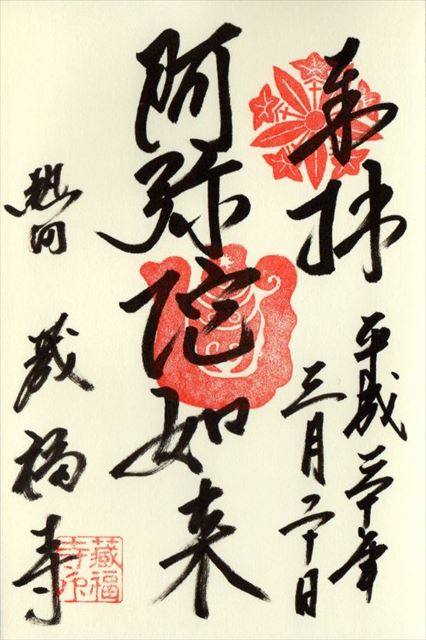 奉拝
平成三十年
三月二十日
阿弥陀如来
熱田 蔵福寺
蔵福寺印